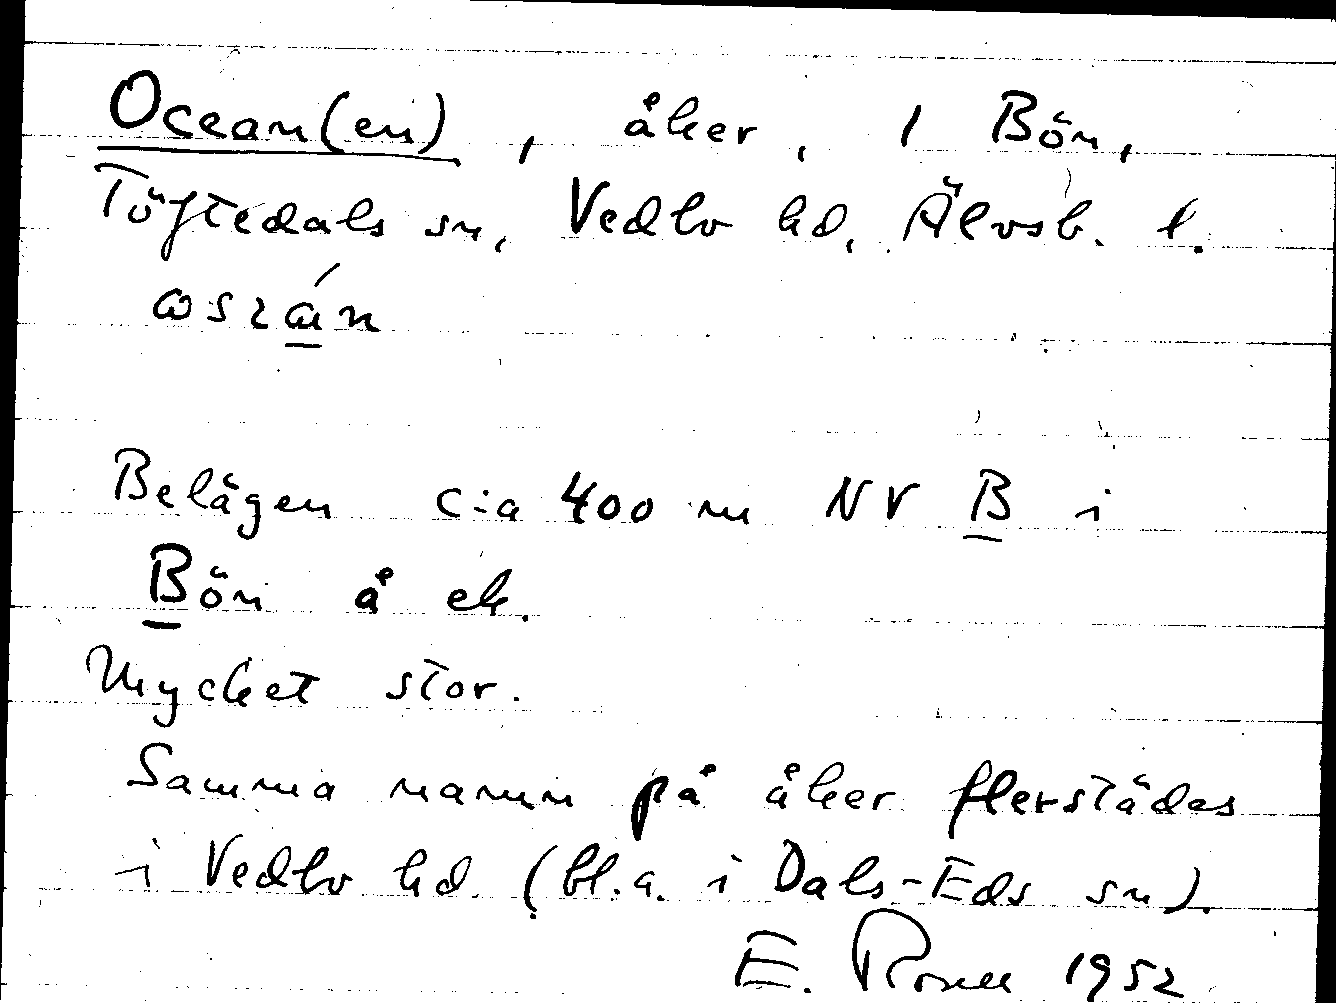 Ocean(en), åker, 1 Bön,
Töftedals sn, Vedbo hd, Älvsb. l.
Belägen c:a 400 m NV B i
Bön å ek.
Mycket stor.
Samma namn på åker flerstädes
i Vedbo hd. (bl.a. i Dals-Eds sn).
E. 1952